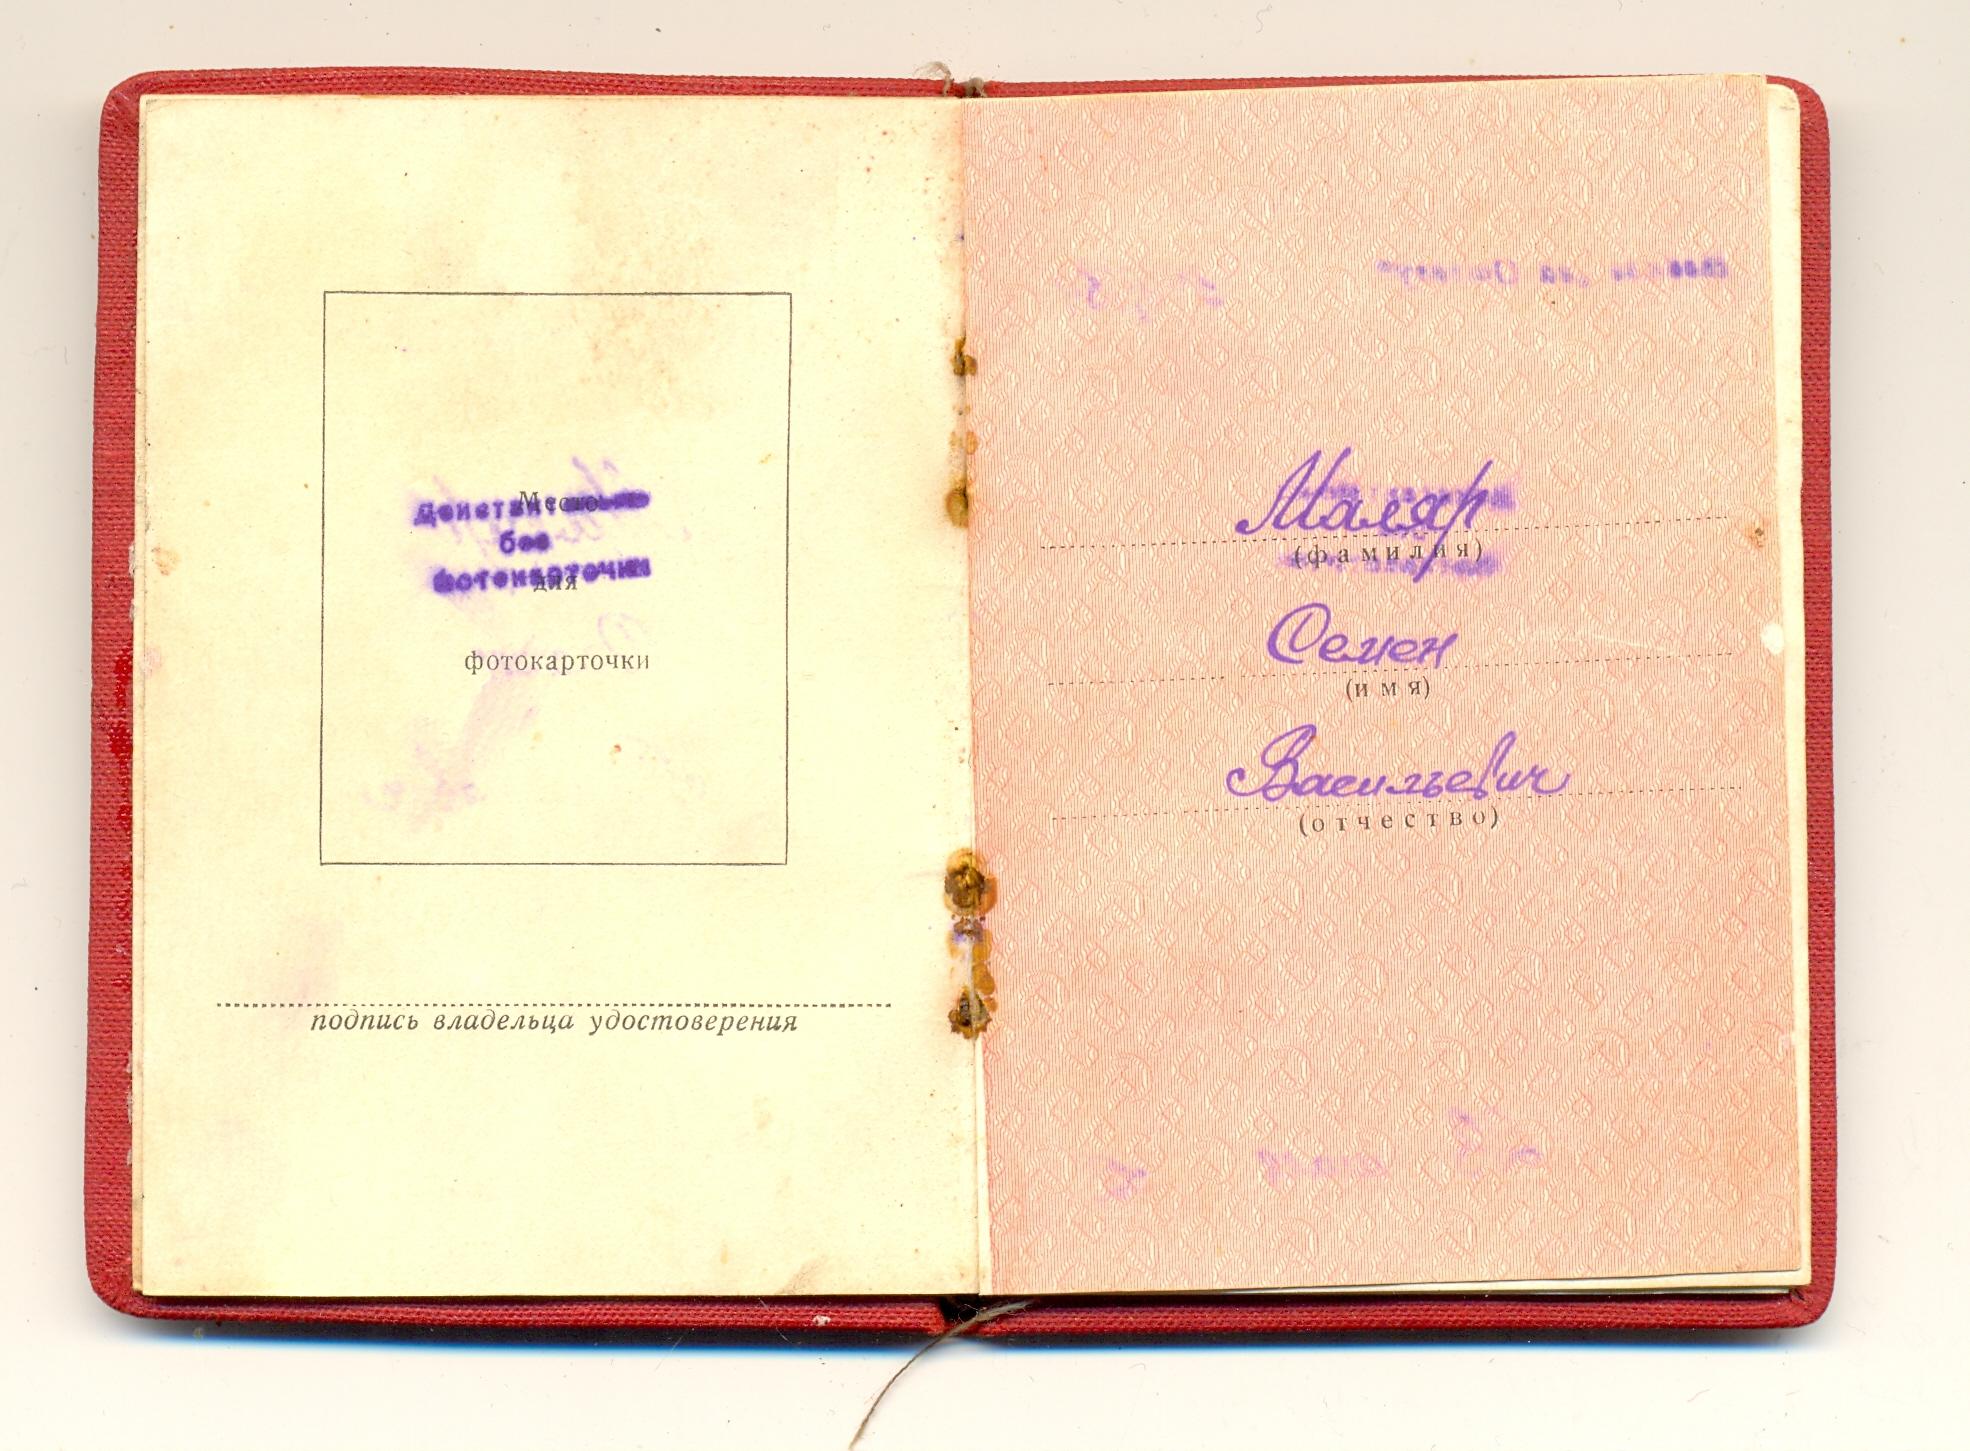 Место
Действительно
без
фотокарточки
для
фотокарточки
подпись владельца удостоверения
Маляр
(фамилия)
Семен
(имя)
Васильевич
(отчество)